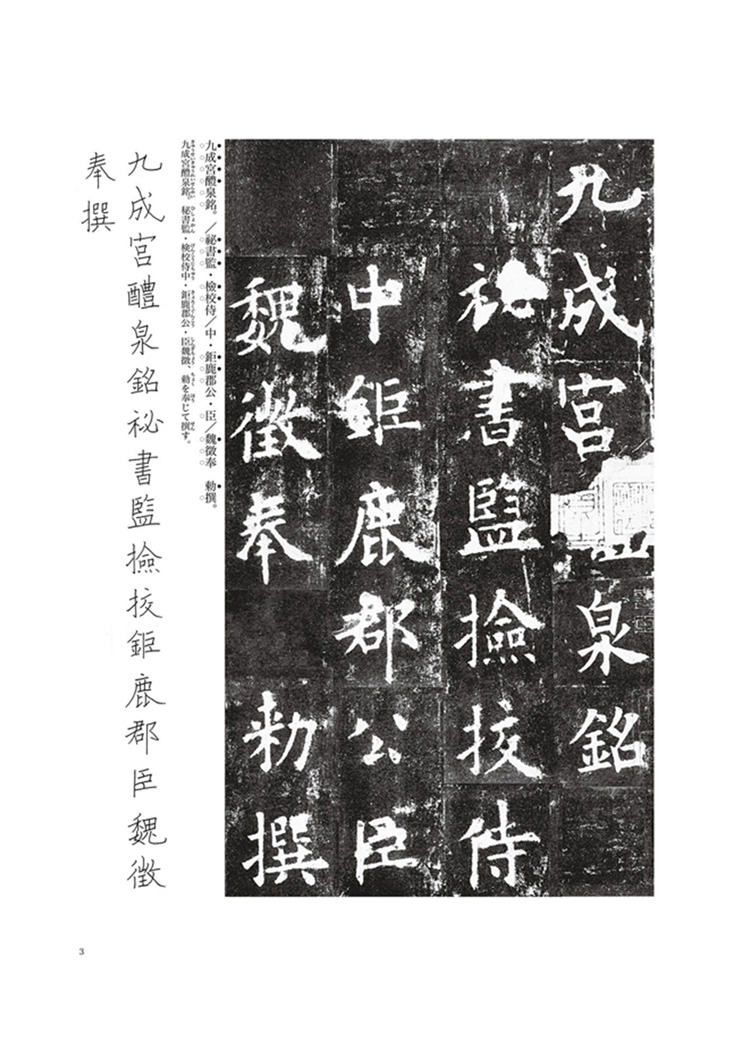 九成宮泉銘
祕書監撿挍侍
中鉅鹿郡公臣
魏徵奉　勅撰
九成宮醴泉銘。／祕書監・檢校侍／中・鉅鹿郡公・臣／魏徵奉　勅撰。
九成宮醴泉銘。秘書監・検校侍中・鉅鹿郡公・臣魏徴、勅を奉じて撰す。
九成宮醴泉銘祕書監撿挍鉅鹿郡臣魏徵
奉撰
3